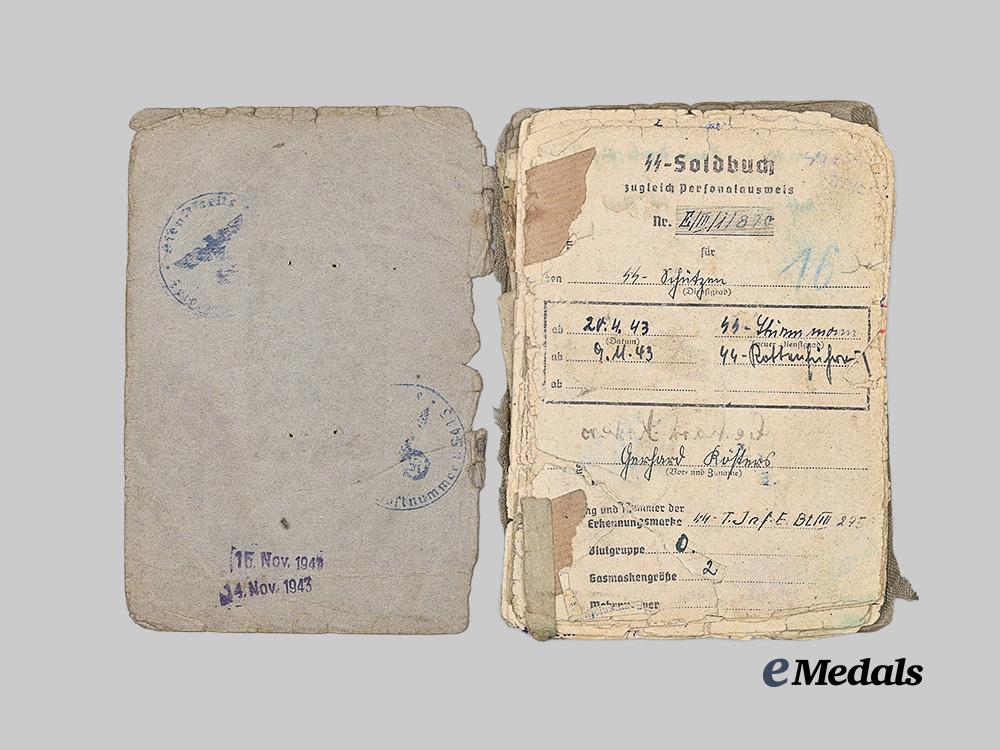 Dienststelle
15. Nov. 194
14. Nov. 1943
SS-Soldbuch
zugleich Personalausweis
Nr. E/III/1/870
16
für
den SS- Schützen
(Dienstgrad)
ab 20.4.43 SS-Sturmmann
(Datum) (neuer Dienstgrad)
ab 9.11.43 SS-Rottenführer
ab
Gerhard Kösters
(Vor- und Zuname)
ng und Nummer der
Erkennungsmarke SS-T.Inf.E.Btl III 295
Blutgruppe 0.
Gasmaskengröße 2
Wehrnummer
eMedals